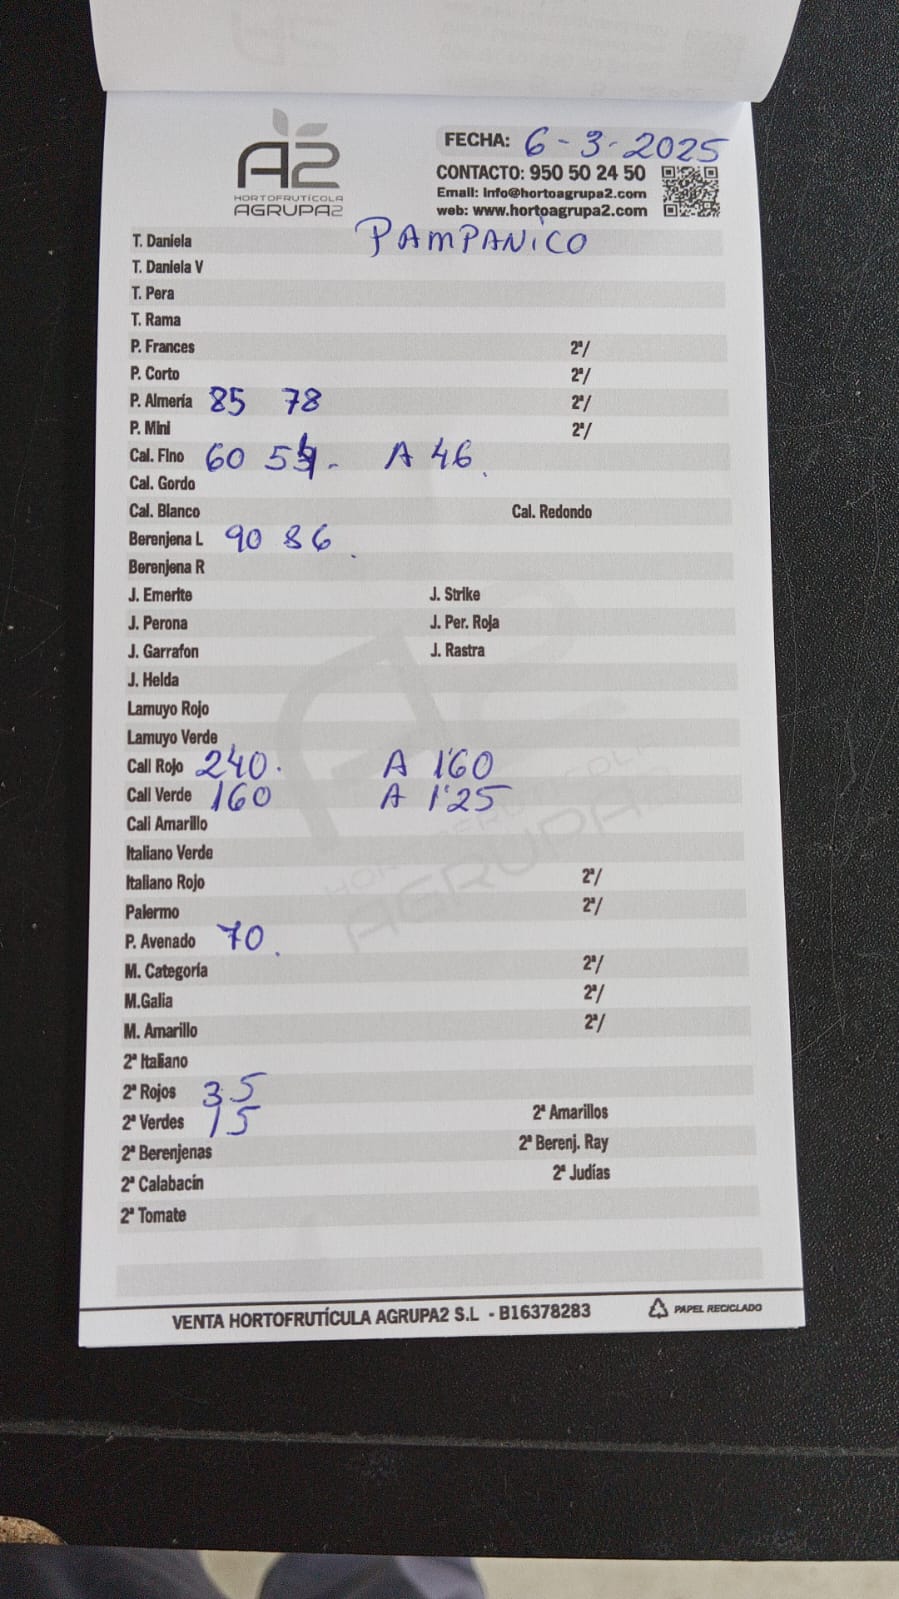 A2
HORTOFRUTÍCOLA
AGRUPA2
FECHA: 6-3-2025
CONTACTO: 950 50 24 50
Email: info@hortoagrupa2.com
web: www.hortoagrupa2.com
PAMPANICO
T. Daniela
T. Daniela V
T. Pera
T. Rama
P. Frances 2ª/
P. Corto 2ª/
P. Almería 85 78 2ª/
P. Mini 2ª/
Cal. Fino 60 54. A 46.
Cal. Gordo
Cal. Blanco Cal. Redondo
Berenjena L 90 86.
Berenjena R
J. Emerite J. Strike
J. Perona J. Per. Roja
J. Garrafon J. Rastra
J. Helda
Lamuyo Rojo
Lamuyo Verde
Cali Rojo 240. A 1'60
Cali Verde 160 A 1'25
Cali Amarillo
Italiano Verde
Italiano Rojo 2ª/
Palermo 2ª/
P. Avenado 70.
M. Categoría 2ª/
M.Galia 2ª/
M. Amarillo 2ª/
2ª Italiano
2ª Rojos 35
2ª Verdes 15 2ª Amarillos
2ª Berenjenas 2ª Berenj. Ray
2ª Calabacín 2ª Judías
2ª Tomate
HORTOFRUTÍCOLA
AGRUPA2
VENTA HORTOFRUTÍCULA AGRUPA2 S.L - B16378283
PAPEL RECICLADO